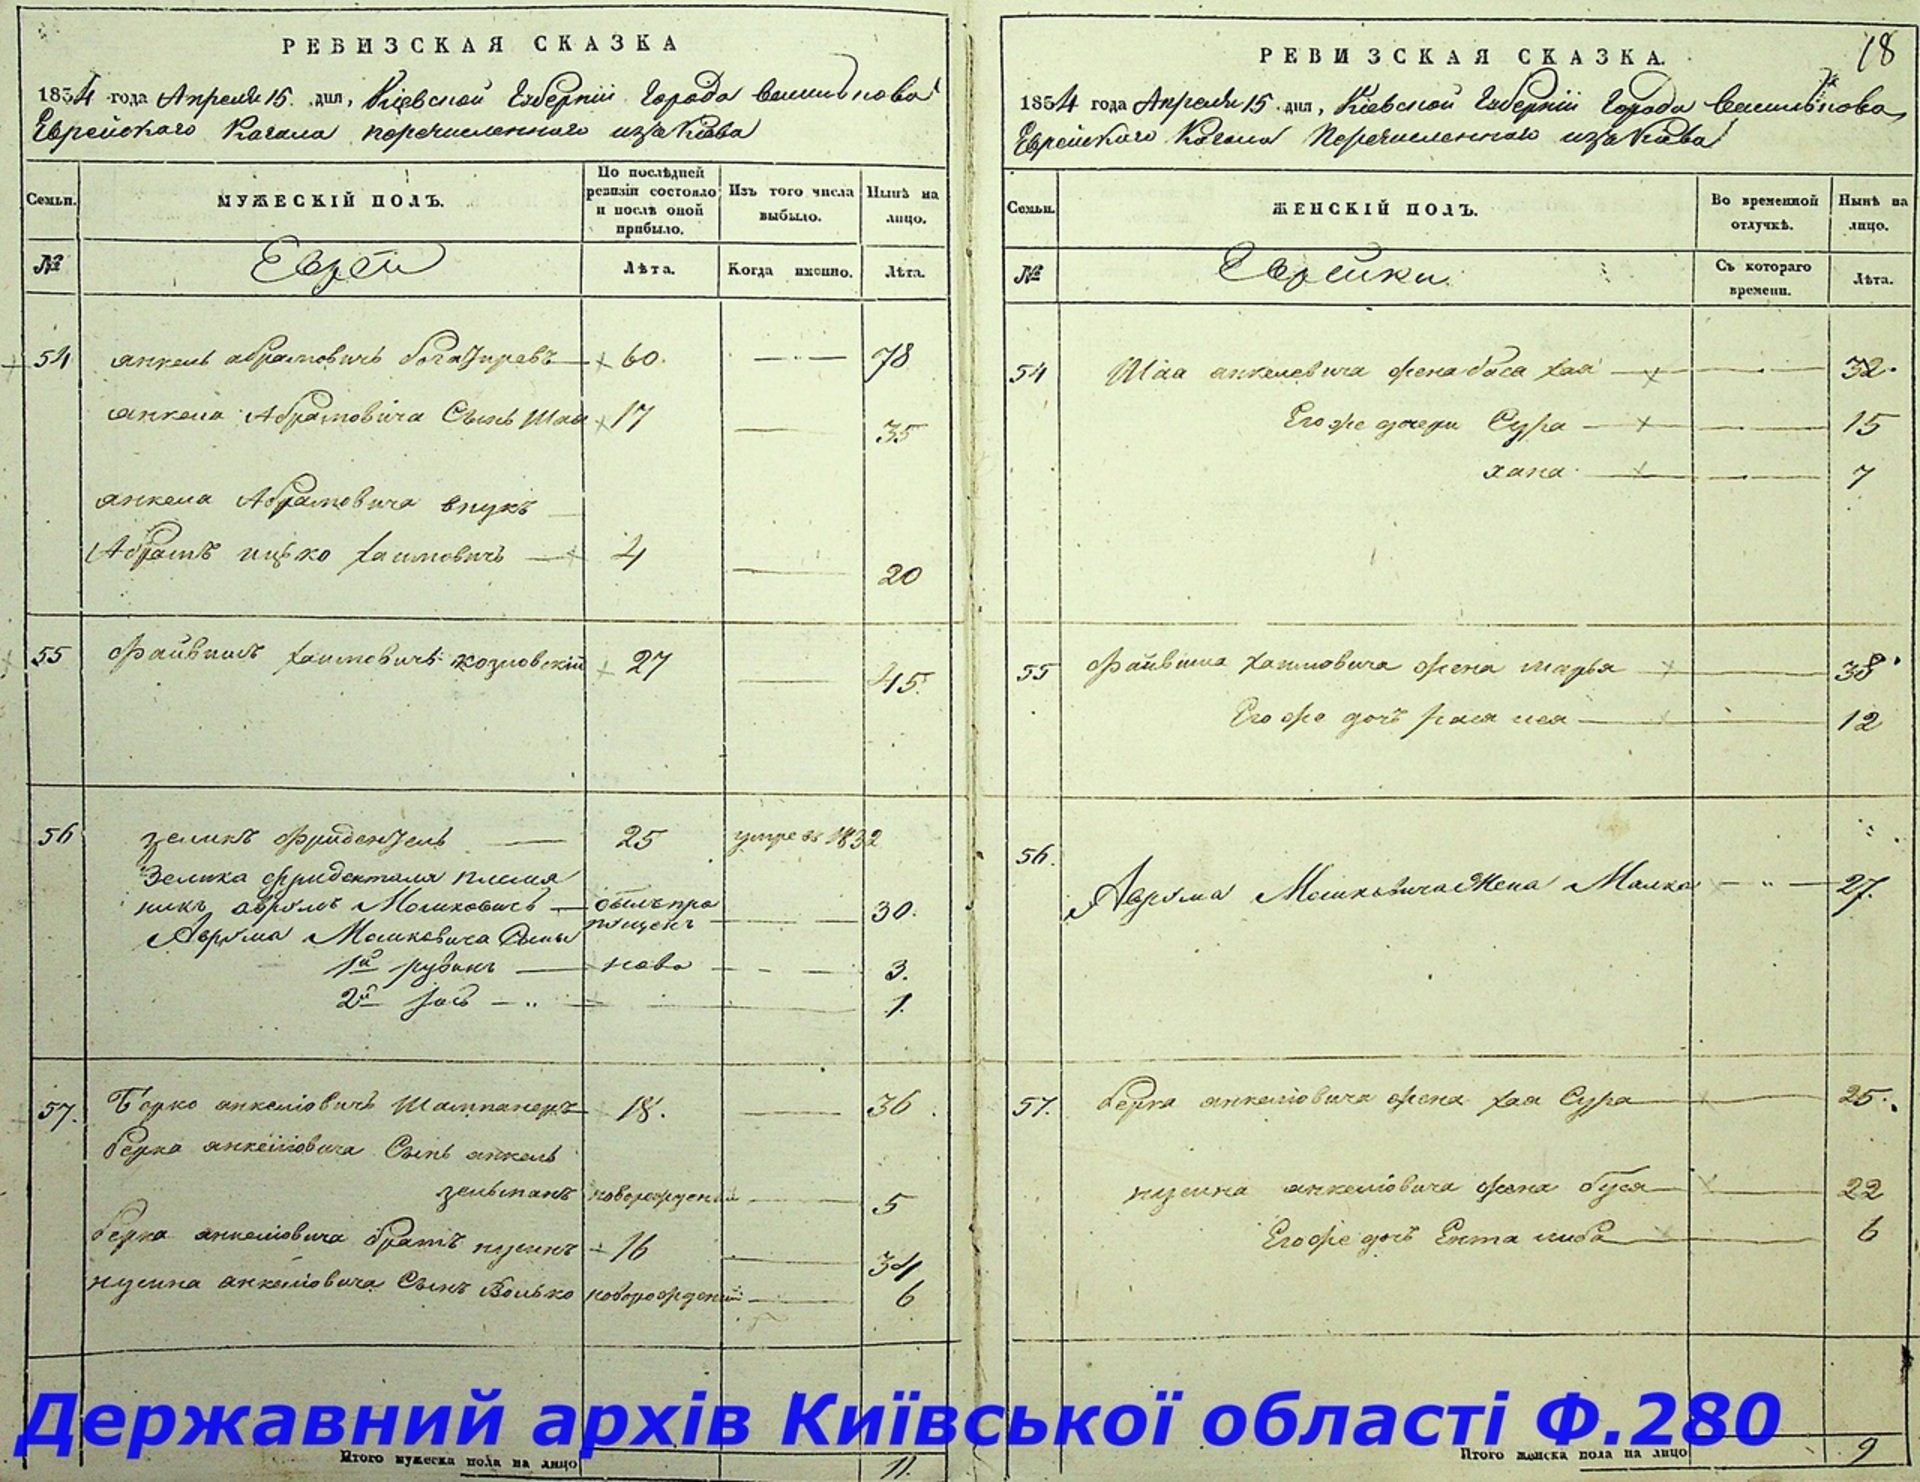 РЕВИЗСКАЯ СКАЗКА
1834 года Апреля 15 дня, Кіевской Губерніи Города Василькова
Еврейскаго Кагала перечисленнаго изъ Кіева
Семьи.
МУЖЕСКІЙ ПОЛЪ.
По послѣдней ревизіи состояло и послѣ оной прибыло.
Изъ того числа выбыло.
Нынѣ на лицо.
№
Евреи
Лѣта.
Когда именно.
Лѣта.
54 анкель абрамовичъ богатиревъ 60. 78
анкеля Абрамовіча Сынъ Шая 17 35
анкеля Абрамовича внукъ
Абрамъ ицько хаимовичъ 4 20
55 Файвишъ хаимовичъ козловскій 27 45.
56 зеликъ Фриденталь 25 умре въ 1832
Зелика Фриденталя племя
никъ аврумъ Мошковичъ былъ про 30.
пущенъ
Аврума Мошковича Сыны
1й рубинъ ново 3.
2й 1.
57. Борко анкеліовичъ Шампанеръ 18. 36
берка анкеліовича Сынъ анкель
зельманъ новорожденій 5
берка анкеліовича братъ нусинъ 16 34
нусина анкеліовича Сынъ Волько новорожденій 6
Итого мужеска пола на лицо 11.
18
РЕВИЗСКАЯ СКАЗКА.
1834 года Апреля 15 дня, Кіевской Губерніи Города Василькова
Еврейскаго Кагала Перечисленнаго изъ Кіева
Семьи.
ЖЕНСКІЙ ПОЛЪ.
Во временной отлучкѣ.
Нынѣ на лицо.
№
Еврейки
Съ котораго времени.
Лѣта.
54 Шаи анкелевича жена баса хая 32.
Его же дочери Сура 15
хана 7
55 Файвиша хаимовича жена марья 38.
Его же дочъ 12
56. Аврума Мошковича Жена Малка 27.
57. берка анкеліовича жена хая Сура 25.
нусина анкеліовича жена буся 22
Его же дочъ Ента либа 6
Итого женска пола на лицо 9
Державний архів Київської області Ф.280